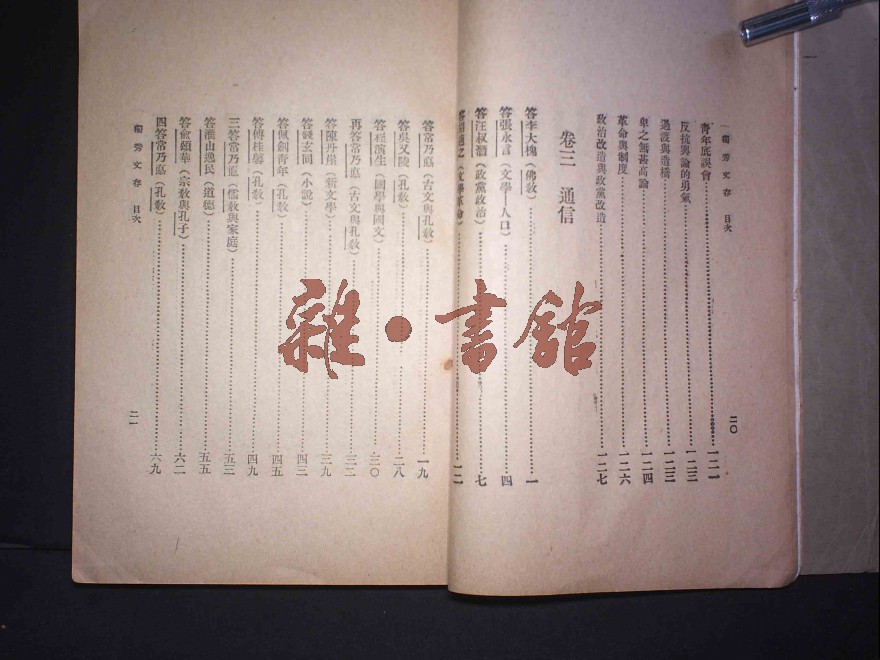 獨秀文存 目次
二〇
青年底誤會 一二一
反抗輿論的勇氣 一二三
過渡與造橋 一二三
卑之無甚高論 一二四
革命與制度 一二六
政治改造與政黨改造 一二七
卷三 通信
答李大槐（佛敎） 一
答張永言（文學——人口） 四
答汪叔潛（政黨政治） 七
答胡適之（文學革命） 一二
答常乃悳（古文與孔敎） 一九
答吳又陵（孔敎） 二八
答程演生（國學與國文） 三〇
再答常乃悳（古文與孔敎） 三二
答陳丹崖（新文學） 三九
答錢玄同（小說） 四三
答佩劍靑年（孔敎） 四五
答傅桂馨（孔敎） 四九
三答常乃悳（儒敎與家庭） 五三
答淮山逸民（道德） 五五
答兪頌華（宗敎與孔子） 六二
四答常乃悳（孔敎） 六九
獨秀文存 目次
二一
雜·書館